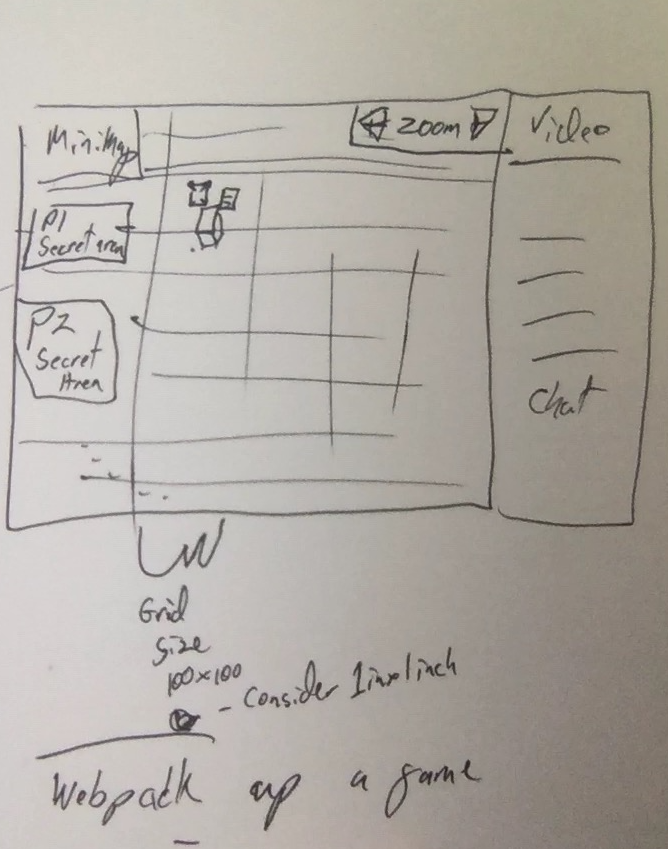 MiniMap
zoom
Video
P1
Secret Area
P2
Secret
Area
Chat
Grid
Size
100x100
- Consider 1inx1inch
Webpack up a game